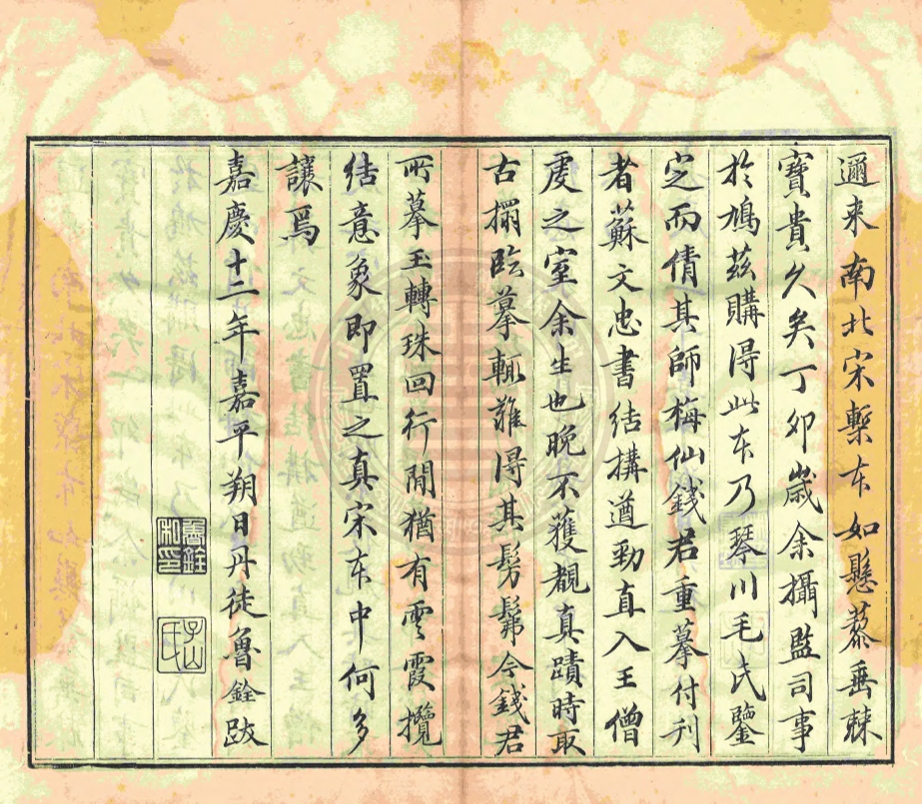 邇来南北宋槧本如懸藜垂棘
寶貴久矣丁卯歲余攝監司事
於鳩茲購得此本乃琴川毛氏鑒
定而倩其師梅仙錢君重摹付刊
者蘇文忠書結搆遒勁直入王僧
虔之室余生也晚不獲覩真蹟時取
古搨臨摹輒難得其髣髴今錢君
所摹玉轉珠回行間猶有雲霞攬
結意象即置之真宋本中何多
讓焉
嘉慶十二年嘉平朔日丹徒魯銓跋
魯銓私印
子山氏